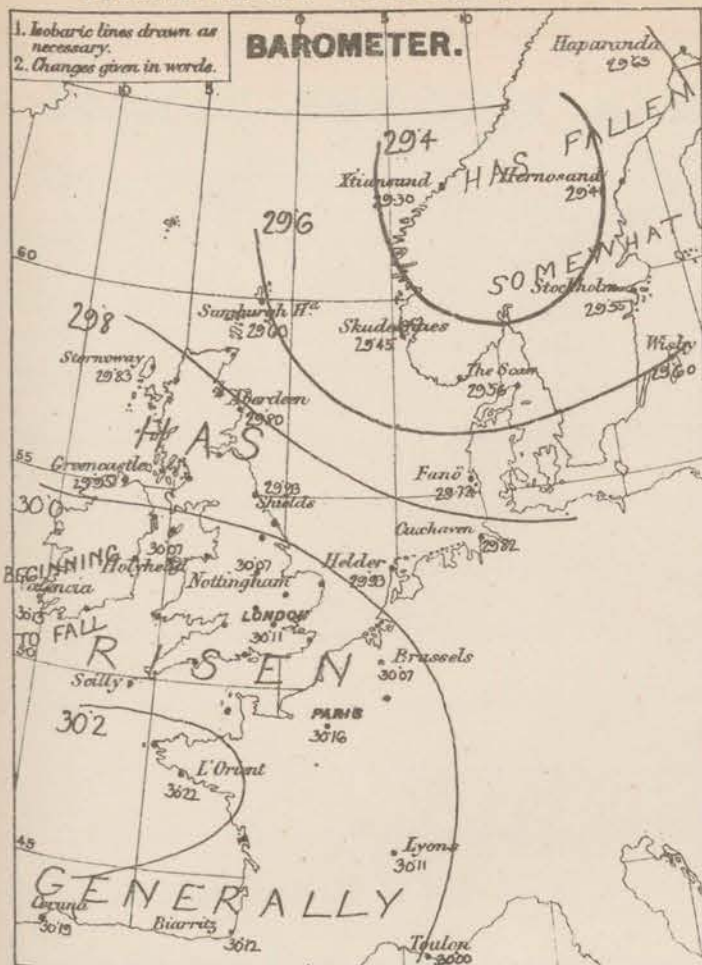 1. Isobaric lines drawn as
necessary.
2. Changes given in words.
BAROMETER.
Haparanda
29·63
10
5
0
5
10
29·4
HAS FALLEN
Xtiansund
29·30
Hernosand
29·41
29·6
SOMEWHAT
60
Stockholm
29·55
Sumburgh Hd.
29·60
Skudesnaes
29·45
29·8
Stornoway
29·83
The Scaw
29·56
Wisby
29·60
Aberdeen
29·80
HAS
55
Greencastle
29·95
29·93
Shields
Fanö
29·72
30·0
Cuxhaven
29·82
30·07
Holyhead
30·07
Nottingham
Helder
29·93
BEGINNING
Valencia
30·15
LONDON
30·11
TO
FALL
50
RISEN
Brussels
30·07
Scilly
30·2
PARIS
30·16
L'Orient
30·22
45
Lyons
30·11
GENERALLY
Coruna
30·19
Biarritz
30·12
Toulon
30·00